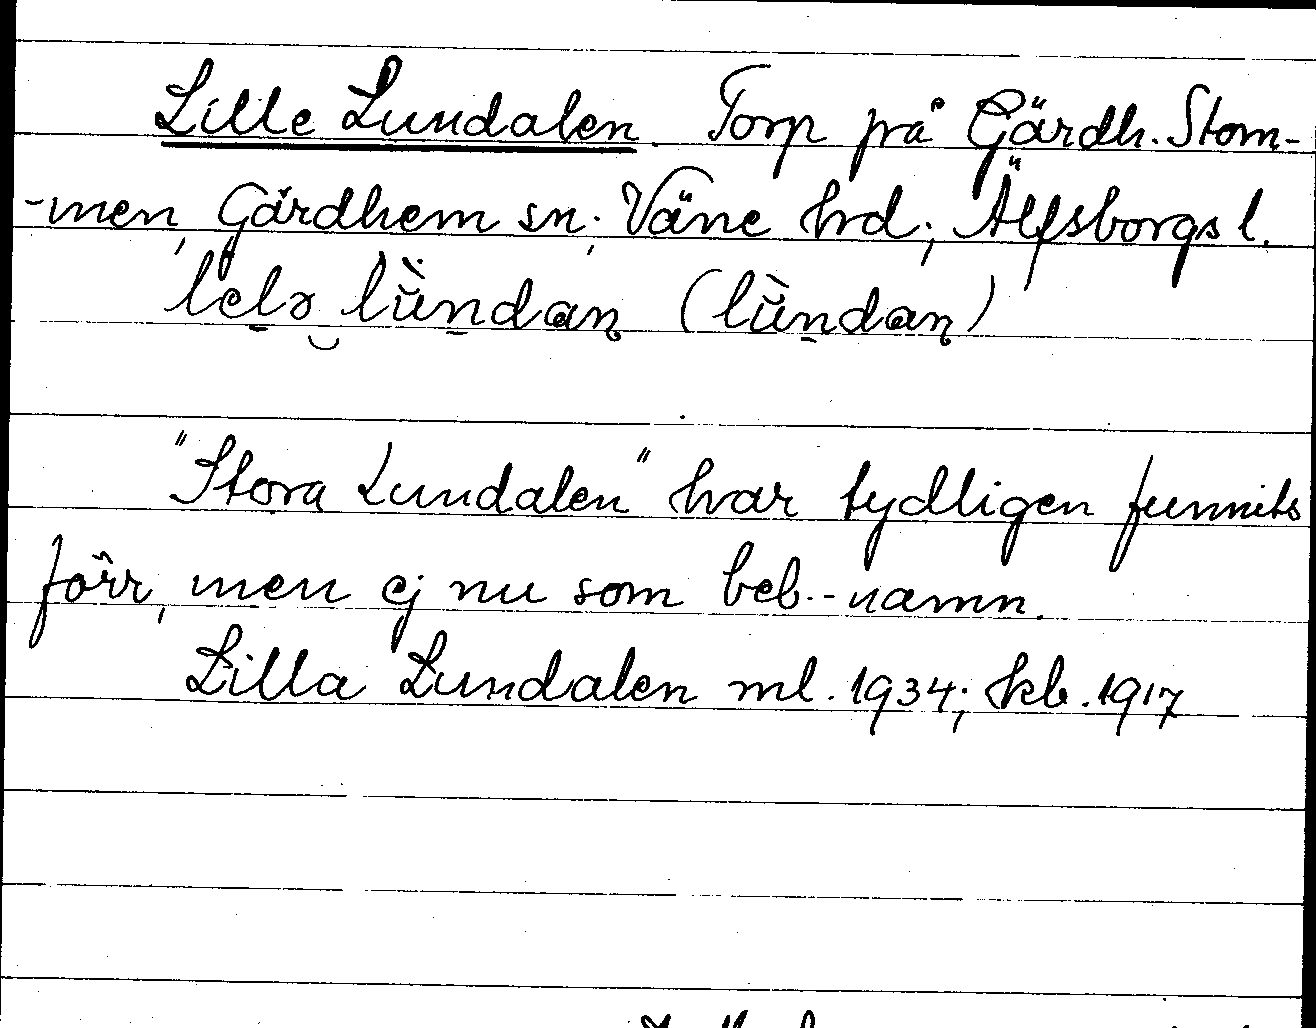 Lille Lundalen. Torp på Gärdh. Stom-
-men, Gärdhem sn; Väne hd; Älfsborgs l.
lelə lùndaṇ (lùndaṇ)
"Stora Lundalen" har tydligen funnits
förr, men ej nu som beb.-namn.
Lilla Lundalen ml. 1934; kb. 1917